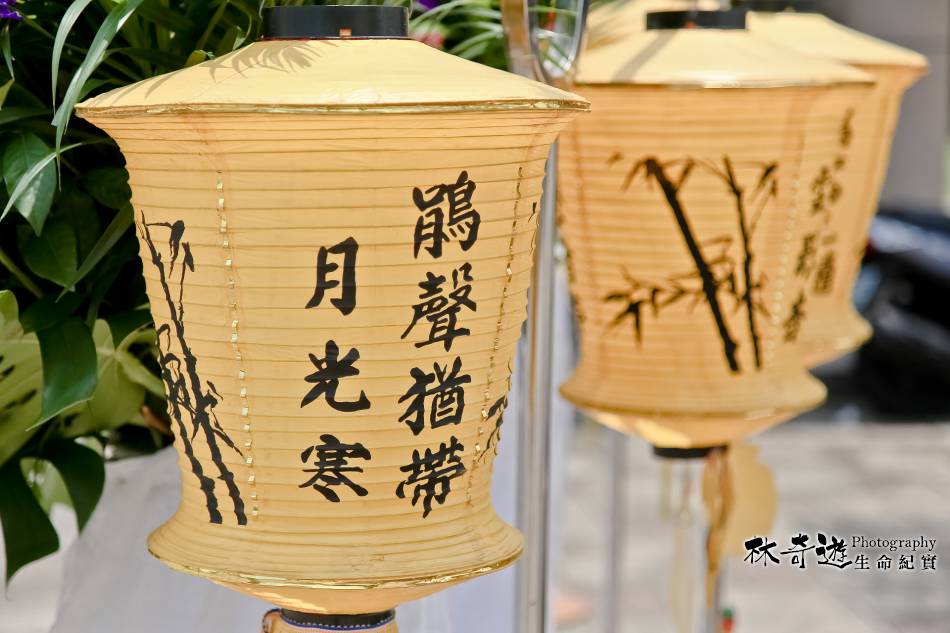 鵑聲猶帶
月光寒
林奇遊 Photography
生命紀實